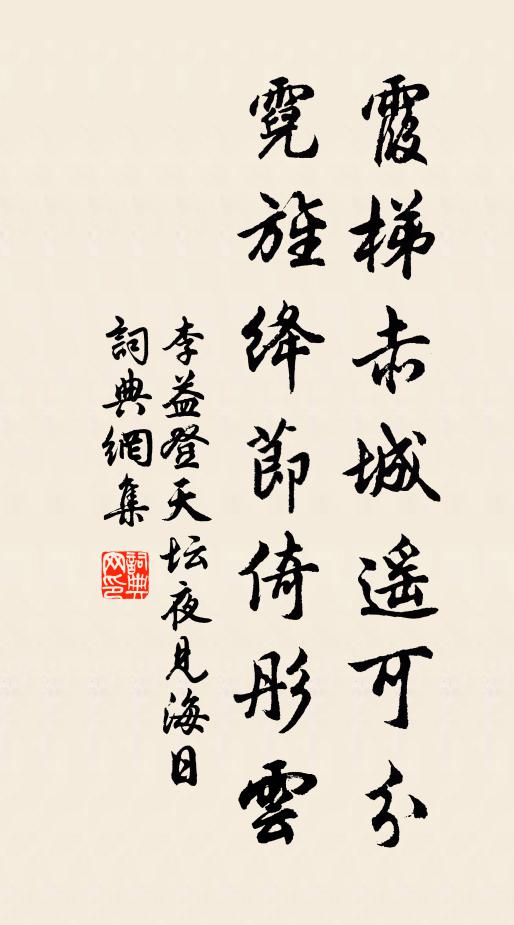 霞梯赤城遥可分
霓旌绛節倚彤雲
李益登天坛夜見海日
詞典網集
詞典網印